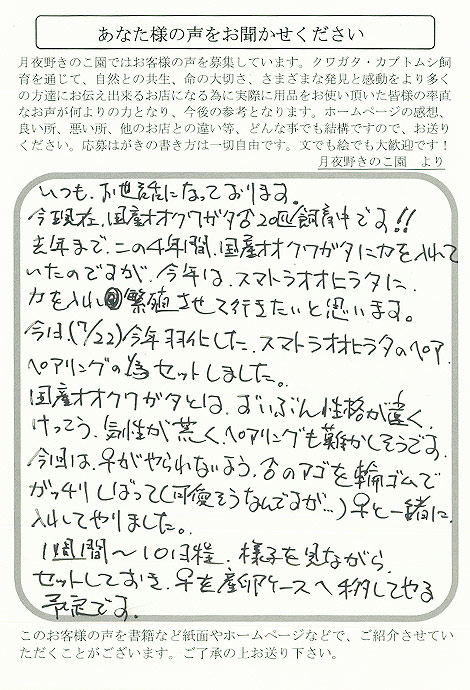 あなた様の声をお聞かせください
月夜野きのこ園ではお客様の声を募集しています。クワガタ・カブトムシ飼
育を通じて、自然との共生、命の大切さ、さまざまな発見と感動をより多く
の方達にお伝え出来るお店になる為に実際に用品をお使い頂いた皆様の率直
なお声が何よりの力となり、今後の参考となります。ホームページの感想、
良い所、悪い所、他のお店との違い等、どんな事でも結構ですので、お送り
ください。応募はがきの書き方は一切自由です。文でも絵でも大歓迎です!
月夜野きのこ園 より
いつも、お世話になっております。
今現在、国産オオクワガタ 20匹飼育中です!!
去年まで、この4年間、国産オオクワガタに力を入れて
いたのですが、今年は、スマトラオオヒラタに、
力を入れ 繁殖させて行きたいと思います。
今日、(7/22)今年羽化した、スマトラオオヒラタのペア、
ペアリングの為セットしました。
国産オオクワガタとは、ずいぶん性格が違く、
けっこう、気性が荒く、ペアリングも難かしそうです。
今回は、♀がやられないよう、♂のアゴを輪ゴムで
ガッチリしばって(可愛そうなんですが…)♀と一緒に、
入れてやりました。
1週間〜10日程、様子を見ながら、
セットしておき、♀を産卵ケースへ移してやる
予定です。
このお客様の声を書籍など紙面やホームページなどで、ご紹介させてい
ただくことがございます。ご了承の上お送り下さい。